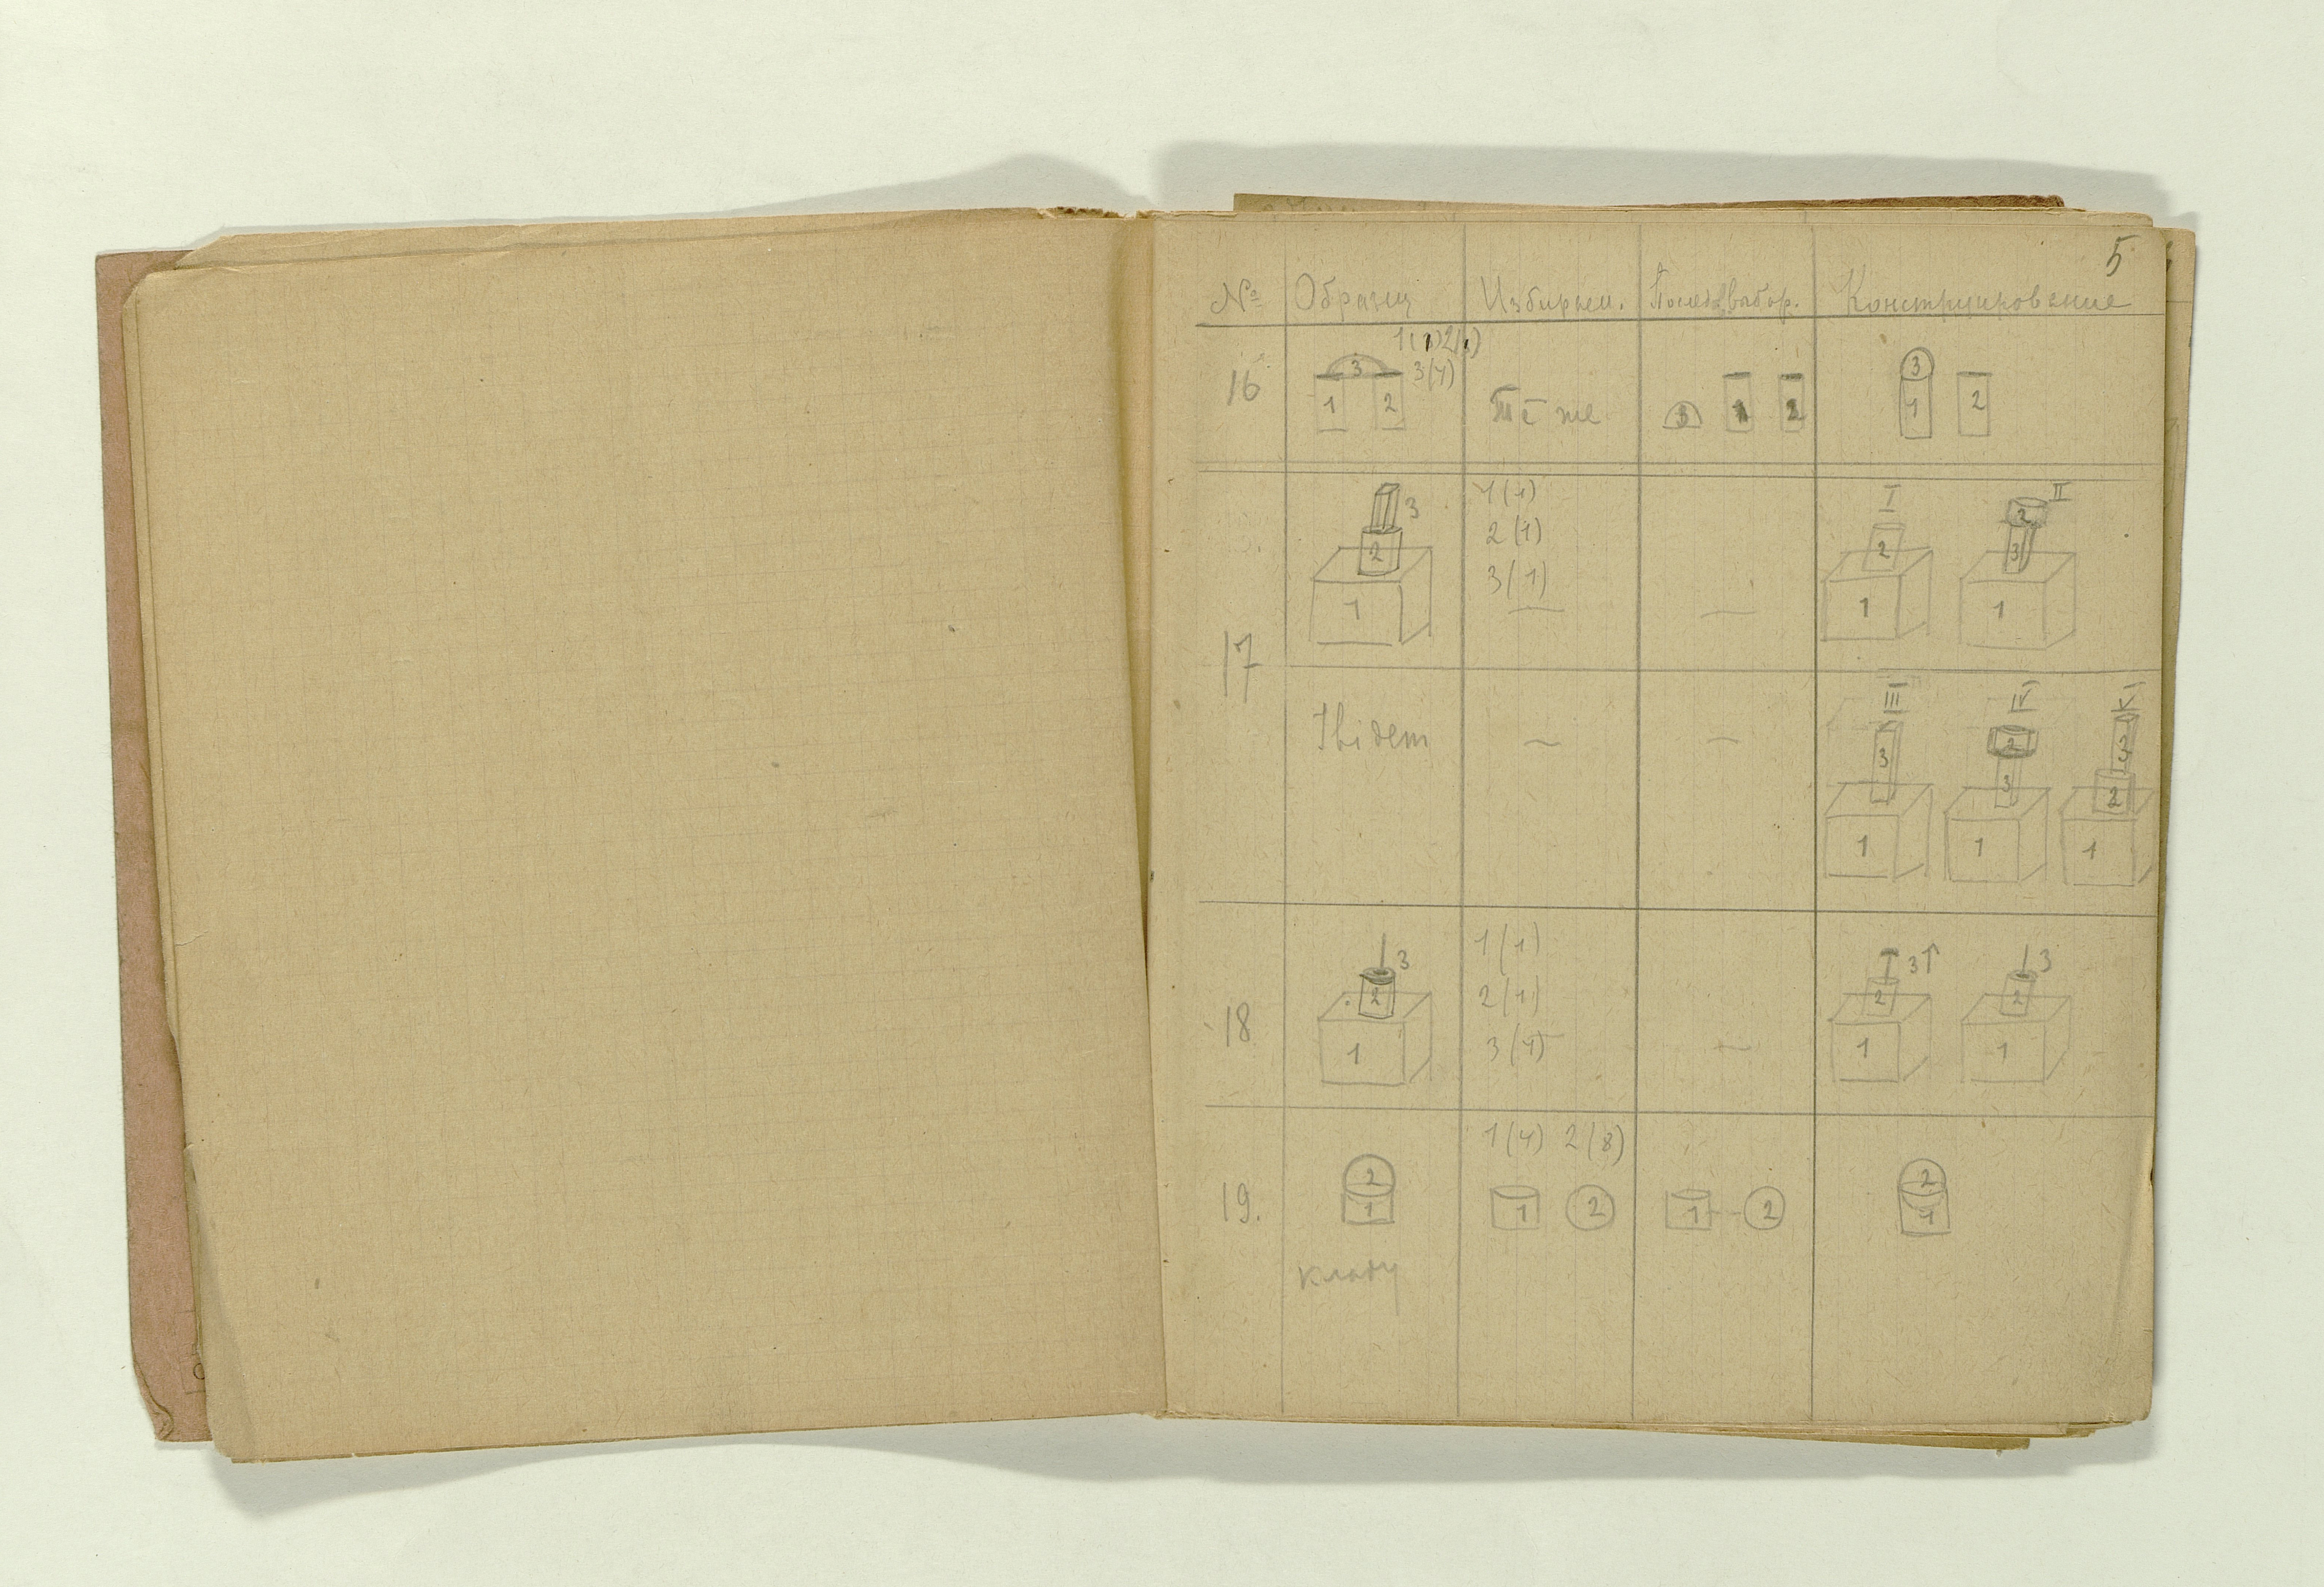 5
№ Образец Избираем. Послед. выбор. Конструирование
16
1(1) 2(1)
3(4)
3
1 2
те же
3 1 2
3
1 2
17
3
2
1
1(1)
2(1)
3(1)
—
—
I
2
1
II
2
3
1
Ibidem
—
—
III
3
1
IV
2
3
1
V
3
2
1
18
3
2
1
1(1)
2(1)
3(4)
—
3↑
2
1
3
2
1
19.
2
1
1(4) 2(8)
1 2
1 - - 2
2
1